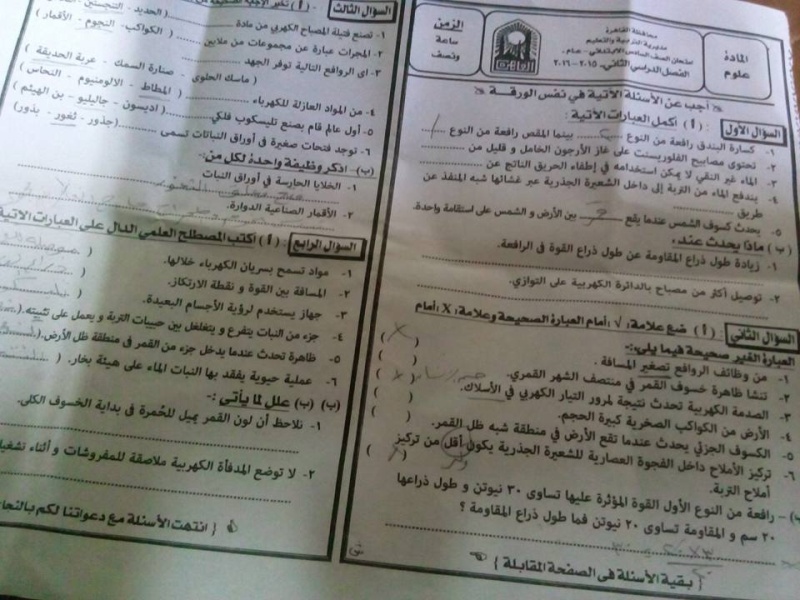 المادة
علوم
محافظة القاهرة
مديرية التربية والتعليم
امتحان الصف السادس الابتدائي - عام -
الفصل الدراسي الثاني ٢٠١٥-٢٠١٦
الزمن
ساعة
ونصف
أجب عن الأسئلة الآتية في نفس الورقة
السؤال الأول : ( أ ) أكمل العبارات الآتية :
١- كسارة البندق رافعة من النوع ............ بينما المقص رافعة من النوع
٢- تحتوى مصابيح الفلورسنت على غاز الأرجون الخامل و قليل من
٣- الماء غير النقي لا يمكن استخدامه في إطفاء الحريق الناتج عن
٤- يندفع الماء من التربة إلى داخل الشعيرة الجذرية عبر غشائها شبه المنفذ عن
طريق
٥- يحدث كسوف الشمس عندما يقع ............ بين الأرض و الشمس على استقامة واحدة.
( ب ) ماذا يحدث عند :
١- زيادة طول ذراع المقاومة عن طول ذراع القوة فى الرافعة.
٢- توصيل أكثر من مصباح بالدائرة الكهربية على التوازي.
السؤال الثاني : ( أ ) ضع علامة: √ :أمام العبارة الصحيحة وعلامة: X :أمام
العبارة الغير صحيحة فيما يلي:-
١- من وظائف الروافع تصغير المسافة . ( X )
٢- تنشا ظاهرة خسوف القمر في منتصف الشهر القمري. ( )
٣- الصدمة الكهربية تحدث نتيجة لمرور التيار الكهربي في الأسلاك. ( )
٤- الأرض من الكواكب الصخرية كبيرة الحجم. ( )
٥- الكسوف الجزئي يحدث عندما تقع الأرض في منطقة شبه ظل القمر. ( )
٦- تركيز الأملاح داخل الفجوة العصارية للشعيرة الجذرية يكون أقل من تركيز
أملاح التربة.
رافعة من النوع الأول القوة المؤثرة عليها تساوى ٣٠ نيوتن و طول ذراعها
٢٠ سم و المقاومة تساوى ٢٠ نيوتن فما طول ذراع المقاومة ؟
{ بقية الأسئلة فى الصفحة المقابلة }
السؤال الثالث : ( أ )
١- تصنع فتيلة المصباح الكهربي من مادة ............ ( الحديد - التنجستين
٢- المجرات عبارة عن مجموعات من ملايين ............ ( الكواكب - النجوم - الأقمار )
٣- اى الروافع التالية توفر الجهد
( ماسك الحلوى - صنارة السمك - عربة الحديقة )
٤- من المواد العازلة للكهرباء ............ ( المطاط - الألومنيوم - النحاس )
٥- أول عالم قام بصنع تليسكوب فلكي ............ ( اديسون - جاليليو - بن الهيثم )
٦- توجد فتحات صغيرة فى أوراق النباتات تسمى ............ (جذور - ثغور - بذور)
(ب)- اذكر وظيفة واحدة لكل من:
١- الخلايا الحارسة في أوراق النبات
٢- الأقمار الصناعية الدوارة.
السؤال الرابع : ( أ ) أكتب المصطلح العلمي الدال على العبارات الآتية
١- مواد تسمح بسريان الكهرباء خلالها. (
٢- المسافة بين القوة و نقطة الارتكاز. (
٣- جهاز يستخدم لرؤية الأجسام البعيدة. (
٤- جزء من النبات يتفرع و يتغلغل بين حبيبات التربة و يعمل على تثبيته. (
٥- ظاهرة تحدث عندما يدخل جزء من القمر في منطقة ظل الأرض. (
٦- عملية حيوية يفقد بها النبات الماء على هيئة بخار. (
(ب) علل لما يأتى :-
١- نلاحظ أن لون القمر يميل للحُمرة فى بداية الخسوف الكلى.
٢- لا توضع المدفأة الكهربية ملاصقة للمفروشات و أثناء تشغيل
{ انتهت الأسئلة مع دعواتنا لكم بالنجاح